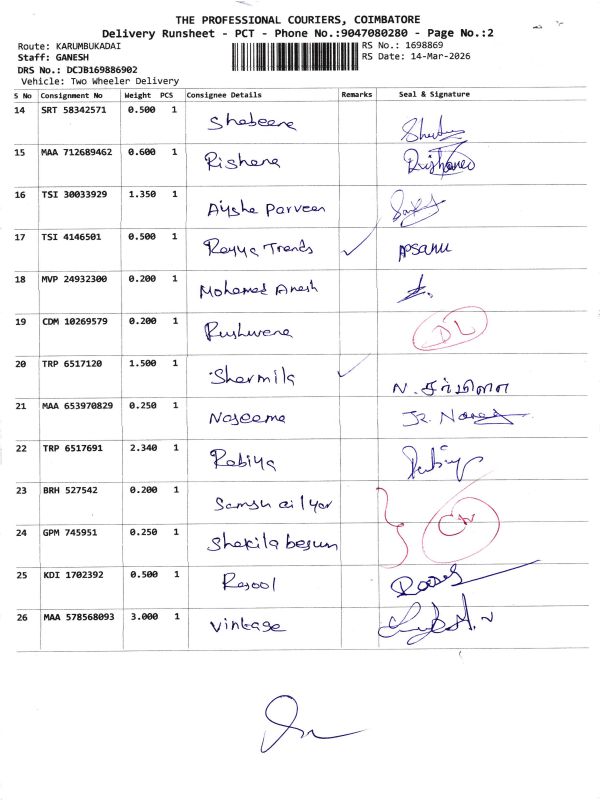 THE PROFESSIONAL COURIERS, COIMBATORE
Delivery Runsheet - PCT - Phone No.:9047080280 - Page No.:2
Route: KARUMBUKADAI RS No.: 1698869
Staff: GANESH RS Date: 14-Mar-2026
DRS No.: DCJB169886902
Vehicle: Two Wheeler Delivery
S No Consignment No Weight PCS Consignee Details Remarks Seal & Signature
14 SRT 58342571 0.500 1 Shabeena
15 MAA 712689462 0.600 1 Rishana
16 TSI 30033929 1.350 1 Aysha Parveen
17 TSI 4146501 0.500 1 Rayya Trends ✓ APSANU
18 MVP 24932300 0.200 1 Mohamed Anesh
19 CDM 10269579 0.200 1 Rushwana DL
20 TRP 6517120 1.500 1 Sharmila ✓ N. சர்மிளா
21 MAA 653970829 0.250 1 Naseema
22 TRP 6517691 2.340 1 Rabiya
23 BRH 527542 0.200 1
24 GPM 745951 0.250 1 Shakila begum
25 KDI 1702392 0.500 1 Rasool
26 MAA 578568093 3.000 1 Vintage